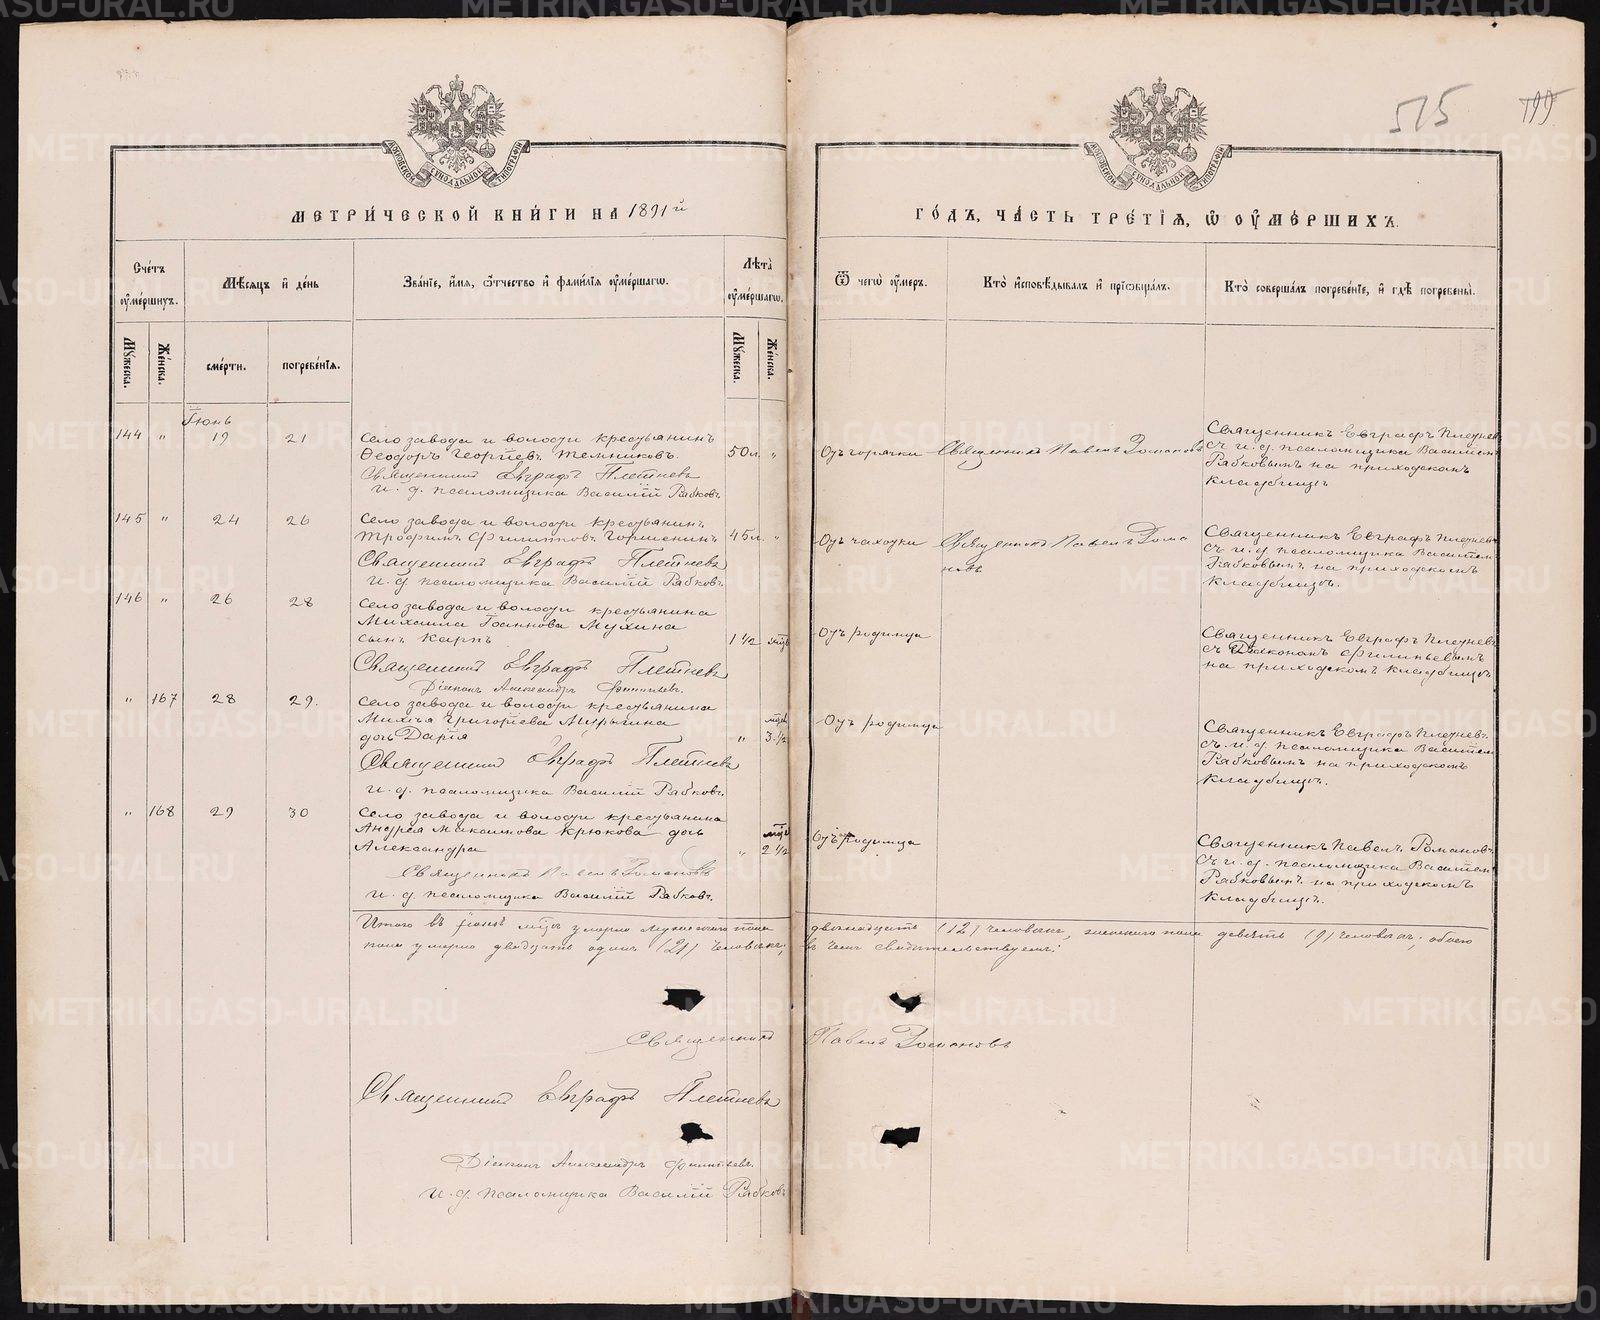 515
199
МЕТРИЧЕСКОЙ КНИГИ НА 1891й
ГОДЪ, ЧАСТЬ ТРЕТІЯ, Ѡ ОУМЕРШИХЪ.
Счетъ оумершихъ.
Мѣсяцъ и день
Званіе, имя, отчество и фамилія оумершагѡ.
Лѣта оумершагѡ.
Ѿ чегѡ оумеръ.
Кто исповѣдывалъ и пріобщалъ.
Кто совершалъ погребеніе, и гдѣ погребены.
Мужеска.
Женска.
смерти.
погребенія.
Мужеска.
Женска.
Іюнь
144 " 19 21
Село завода и волости крестьянинъ
Ѳеодоръ Георгіевъ Темниковъ.
50 л. "
Отъ горячки
Священникъ Павелъ Романовъ
Священникъ Евграфъ Плетневъ
съ и. д. псаломщика Василіем
Рябковымъ на приходскомъ
кладбищѣ
Священникъ Евграфъ Плетневъ
и. д. псаломщика Василій Рябковъ
145 " 24 26
Село завода и волости крестьянинъ
Трофимъ Филипповъ Горшенинъ
45 л. "
Отъ чахотки
Священникъ Павелъ Рома
новъ
Священникъ Евграфъ Плетневъ
съ и. д. псаломщика Василіем
Рябковымъ на приходскомъ
кладбищѣ.
Священникъ Евграфъ Плетневъ
и. д. псаломщика Василій Рябковъ.
146 " 26 28
Село завода и волости крестьянина
Михаила Іоаннова Мухина
сынъ Карпъ
1 1/2 мѣс
Отъ родимца
Священникъ Евграфъ Плетневъ
съ Діакономъ Филипьевымъ
на приходскомъ кладбищѣ
Священникъ Евграфъ Плетневъ
Діаконъ Александръ Филипьевъ.
" 167 28 29.
Село завода и волости крестьянина
Михѣя Григоріева
дочь Дарія
" мѣс 3 1/2
Отъ родимца
Священникъ Евграфъ Плетневъ
съ и. д. псаломщика Василіем
Рябковымъ на приходскомъ
кладбищѣ.
Священникъ Евграфъ Плетневъ
и. д. псаломщика Василій Рябковъ.
" 168 29 30
Село завода и волости крестьянина
Андрея Максимова Крюкова дочь
Александра
" мѣс 2 1/2
Отъ родимца
Священникъ Павелъ Романовъ
съ и. д. псаломщика Василіем
Рябковымъ на приходскомъ
кладбищѣ.
Священникъ Павелъ Романовъ
и. д. псаломщика Василій Рябковъ.
Итого въ Іюнѣ мѣс умерло мужескаго пола двѣнадцать (12) человѣкъ, женскаго пола девять (9) человѣкъ; обоего
пола умерло двадцать одинъ (21) человѣкъ; въ чемъ свидѣтельствуемъ:
Священникъ Павелъ Романовъ
Священникъ Евграфъ Плетневъ
Діаконъ Александръ Филипьевъ.
И. д. псаломщика Василій Рябковъ
METRIKI.GASO-URAL.RU